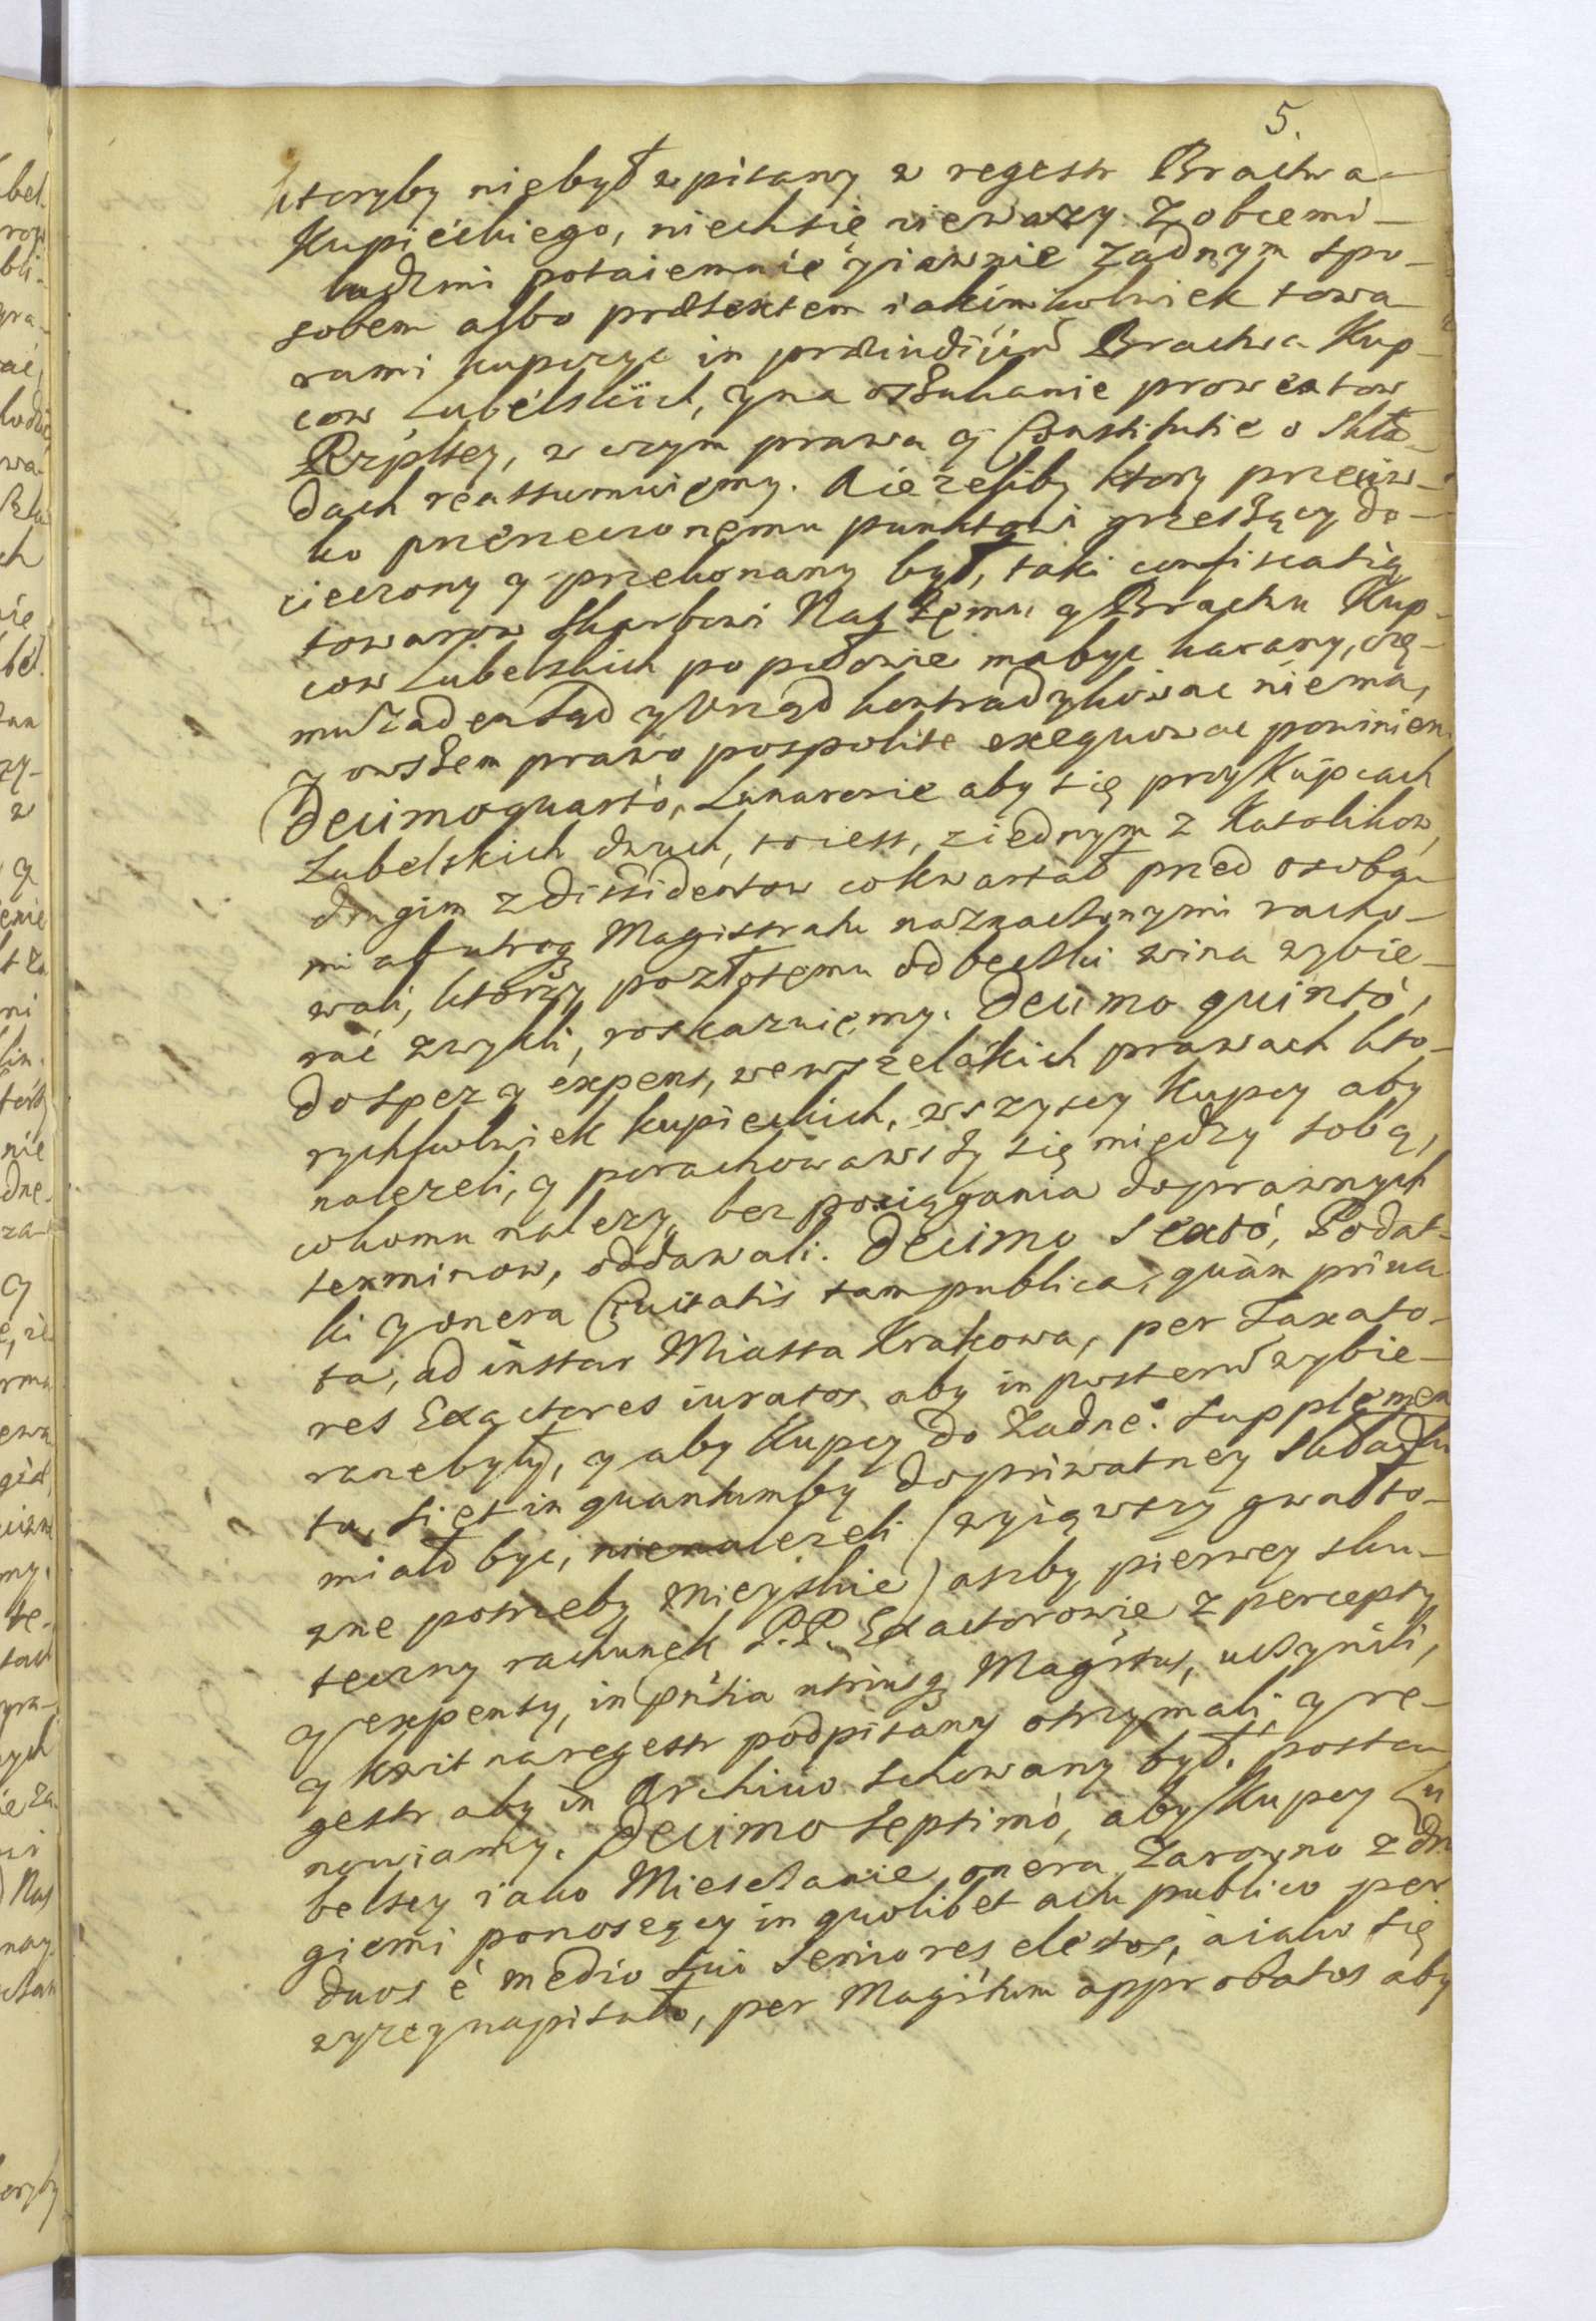 5.
ktoryby niebył wpisany w regestr Bractwa
Kupieckiego, niech sie niewazy z obcemi
ludzmi potaiemnie y iawnie zadnym spo-
sobem albo prætextem iakimkolwiek towa-
rami kupczyc in præiudicium Bractwa Kup-
cow Lubelskiich, y na oszukanie prowentow
Rzpltey, w czym prawa y Constitutie o Skła-
dach reassumuiemy. A iezeliby ktory przeciw-
ko pnerzeczonemu punktowi grzeszący do-
cieczony y przekonany był, taki confiscatią
towarow Skarbowi Naszemu y Bractwu Kup-
cow Lubelskich po połowie ma byc karany, cze-
mu zaden Sąd y Urząd kontradykowac niema,
y owszem prawo pospolite exequowac powinien
Decimoquarto, Lunarerie aby się przy Kupcach
Lubelskich dwuch, to iest, ziednym z Katolikow,
drugim z Dissidentow co kwartał przed osoba-
mi ab utroq Magistratu naznaczonymi racho-
wali, ktorzy po złotemu od beczki wina wybie-
rać zwykli, roskazuiemy. Decimo quintò,
do spez y expens, we wszelakich prawach kto-
rychkolwiek kupieckich, wszyscy Kupcy aby
nalezeli, y porachowawszy się między sobą,
co komu nalezy, bez pociągania do prawnych
terminow, oddawali. Decimo Sextò, Podat-
ki y onera Civitatis tam publica, quàm priua-
ta, ad instar Miasta Krakowa, per Taxato-
res Exactores iuratos, aby in posterum wybie-
rane były, y aby Kupcy do zadne: Supplemen
ta, si et in quantumby do priwatney składku
miało byc, nienalezeli (wyiąwszy gwałto-
wne potrzeby Mieyskie) aszby pierwey sku-
teczny rachunek P.P. Exactorowie z percepty
y expensy, in pntia utriusq Magrtus, uczynili,
y kwit na regestr podpisany otrzymali, y re-
gestr aby in Archiuo schowany był, postan-
nowiamy. Decimo septimò, aby Kupcy Lu
belscy iako Miesczanie onera zarowno z dru
giemi ponosęcy in quolibet actu publico per
duos è medio sui Seniores electos, a iako się
wyzey napisało, per Magrtum approbatos aby